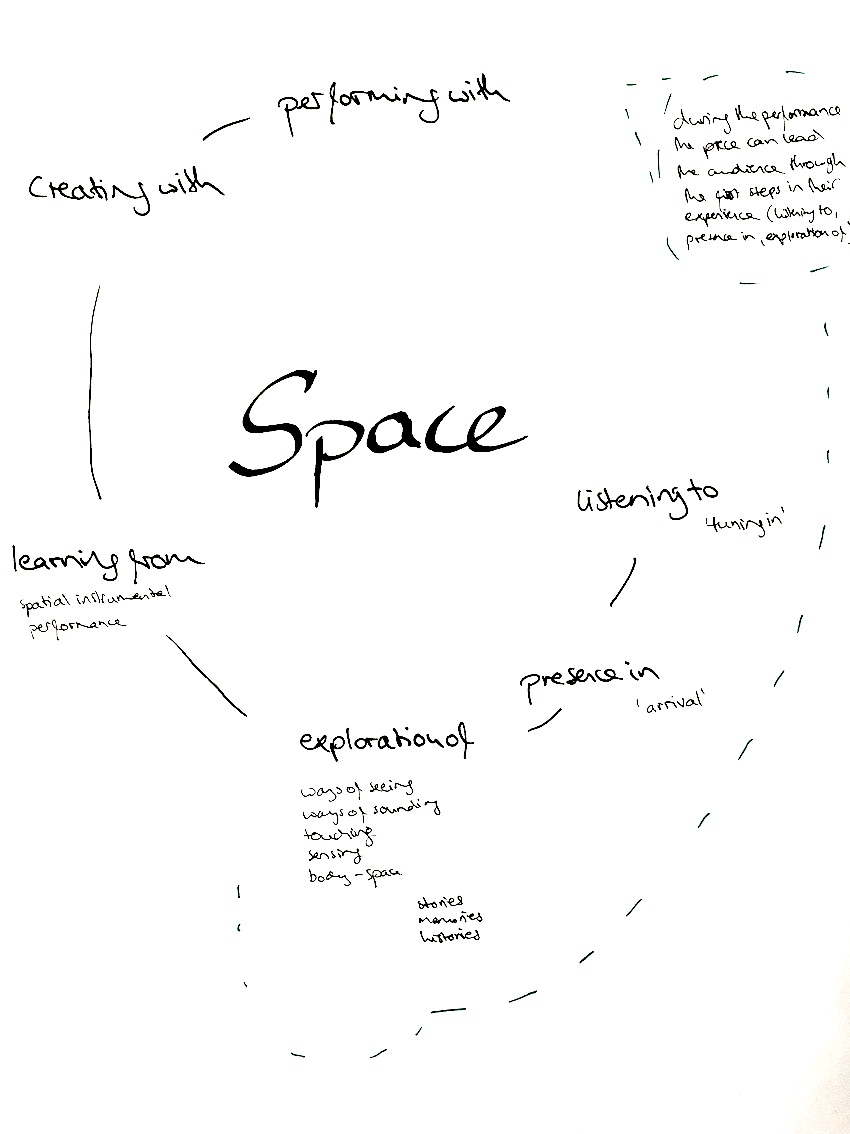 performing with
Creating with
during the performance
the piece can lead
the audience through
the first steps in their
experience (listening to,
presence in, exploration of)
Space
listening to
'tuning in'
learning from
spatial instrumental
performance
presence in
'arrival'
exploration of
ways of seeing
ways of sounding
touching
sensing
body-space
stories
memories
histories